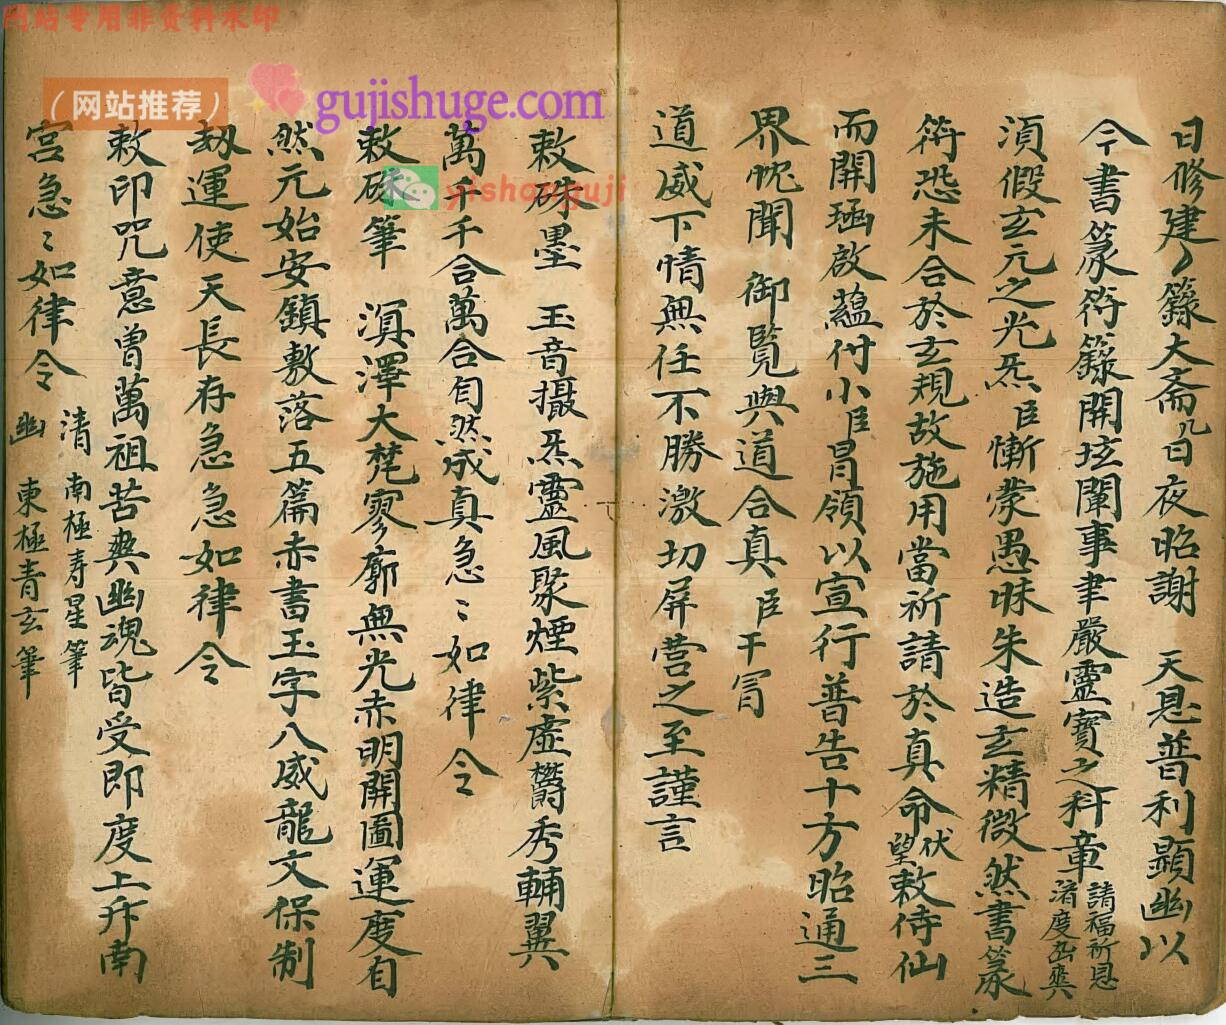 网站专用非资料水印
(网站推荐)
gujishuge.com
yishanguji
日修建〻籙大斋几日夜昭謝 天恩普利顯幽以
今書篆符籙開玹闡事聿嚴靈寶之科章 請福祈恩 渚度幽爽
須假玄元之光炁臣慚蒙愚昧朱造玄精微然書篆
符恐未合於玄規故施用當祈請於真命 伏望 敕侍仙
而開琋啟蘊付小臣冒領以宣行普告十方昭通三
界恱聞 御覽與道合真臣干冒
道威下情無任不勝激切屏营之至謹言
敕硃墨 玉音攝炁靈風聚煙紫虛欝秀輔翼
萬千千合萬合自然成真急〻如律令
敕硃筆 溟澤大梵寥廓無光赤明開圖運度自
然元始安鎮敷落五篇赤書玉字八威龍文保制
刼運使天長存急急如律令
敕印咒 億曾萬祖苦爽幽魂皆受即度上升南
宫急〻如律令
清 南極寿星筆
幽 東極青玄筆